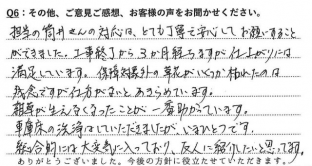 Q6：その他、ご意見ご感想、お客様の声をお聞かせください。
担当の筒井さんの対応は、とても丁寧で安心してお願いすること
ができました。工事終了から3か月経ちますが仕上がりには
満足しています。保障対象外の草花がいくつか枯れたのは
残念ですが仕方がないと、あきらめています。
雑草が生えなくなったことが一番助かっています。
車庫床の洗浄はしていただきましたが、いまひとつです。
総合的には大変気に入っており、友人に紹介したいと思ってます。
ありがとうございました。今後の方針に役立たせていただきます。